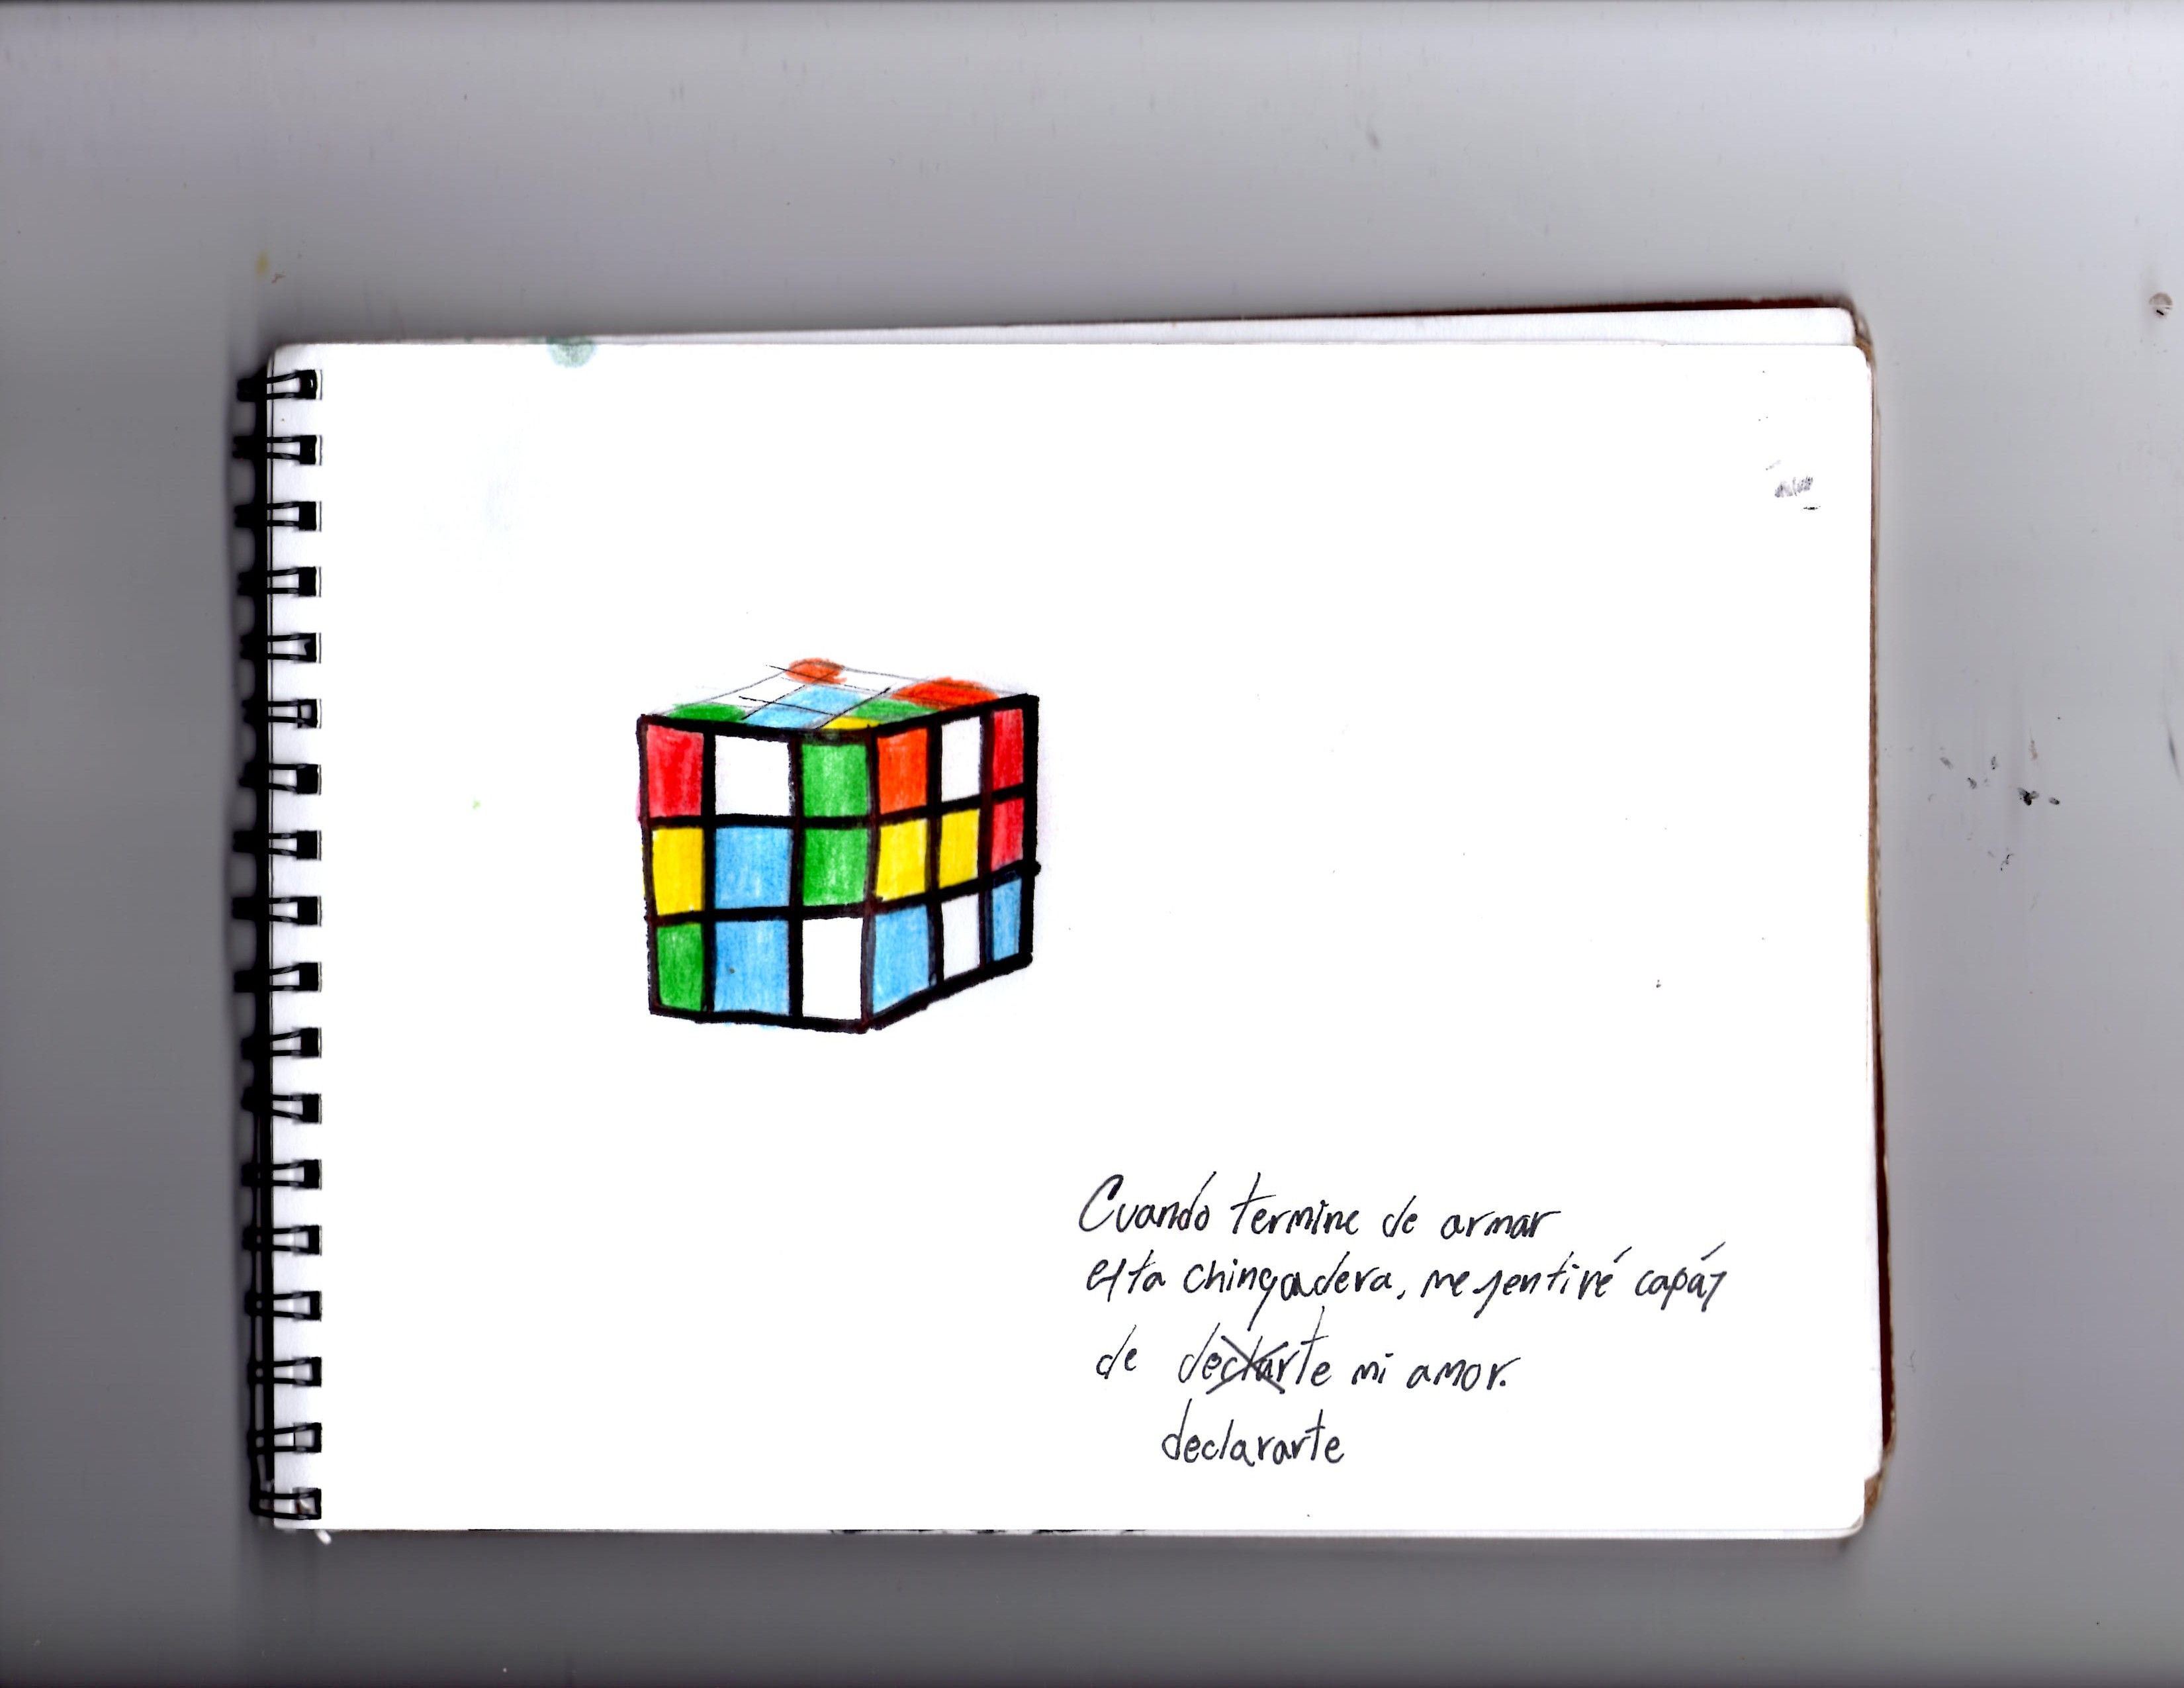 Cuando termine de armar
esta chingadera, me sentiré capáz
de declarte mi amor.
declararte